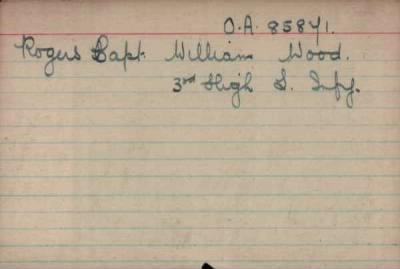 O.A. 85841.
Rogers Capt. William Wood.
3rd High L. Infy.